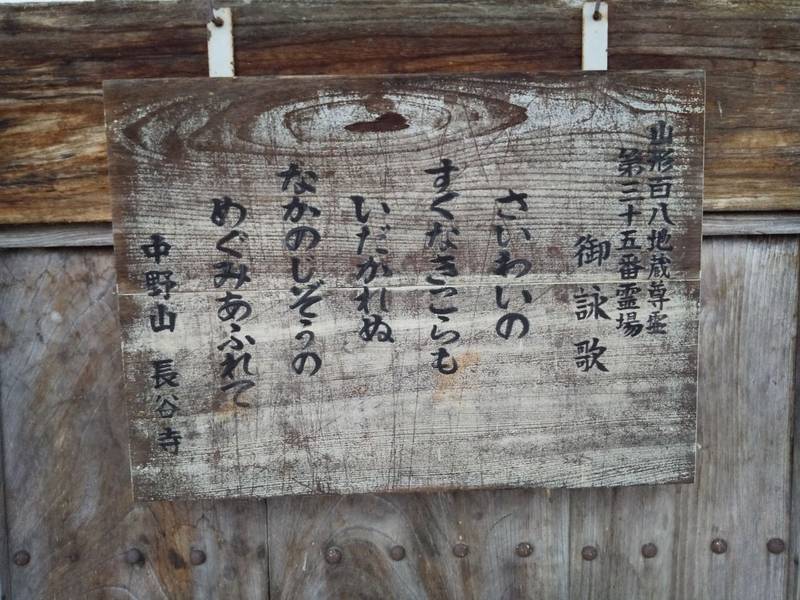 山形百八地蔵尊霊
第三十五番霊場
御詠歌
さいわいの
すくなきこらも
いだかれぬ
なかのじぞうの
めぐみあふれて
中野山 長谷寺